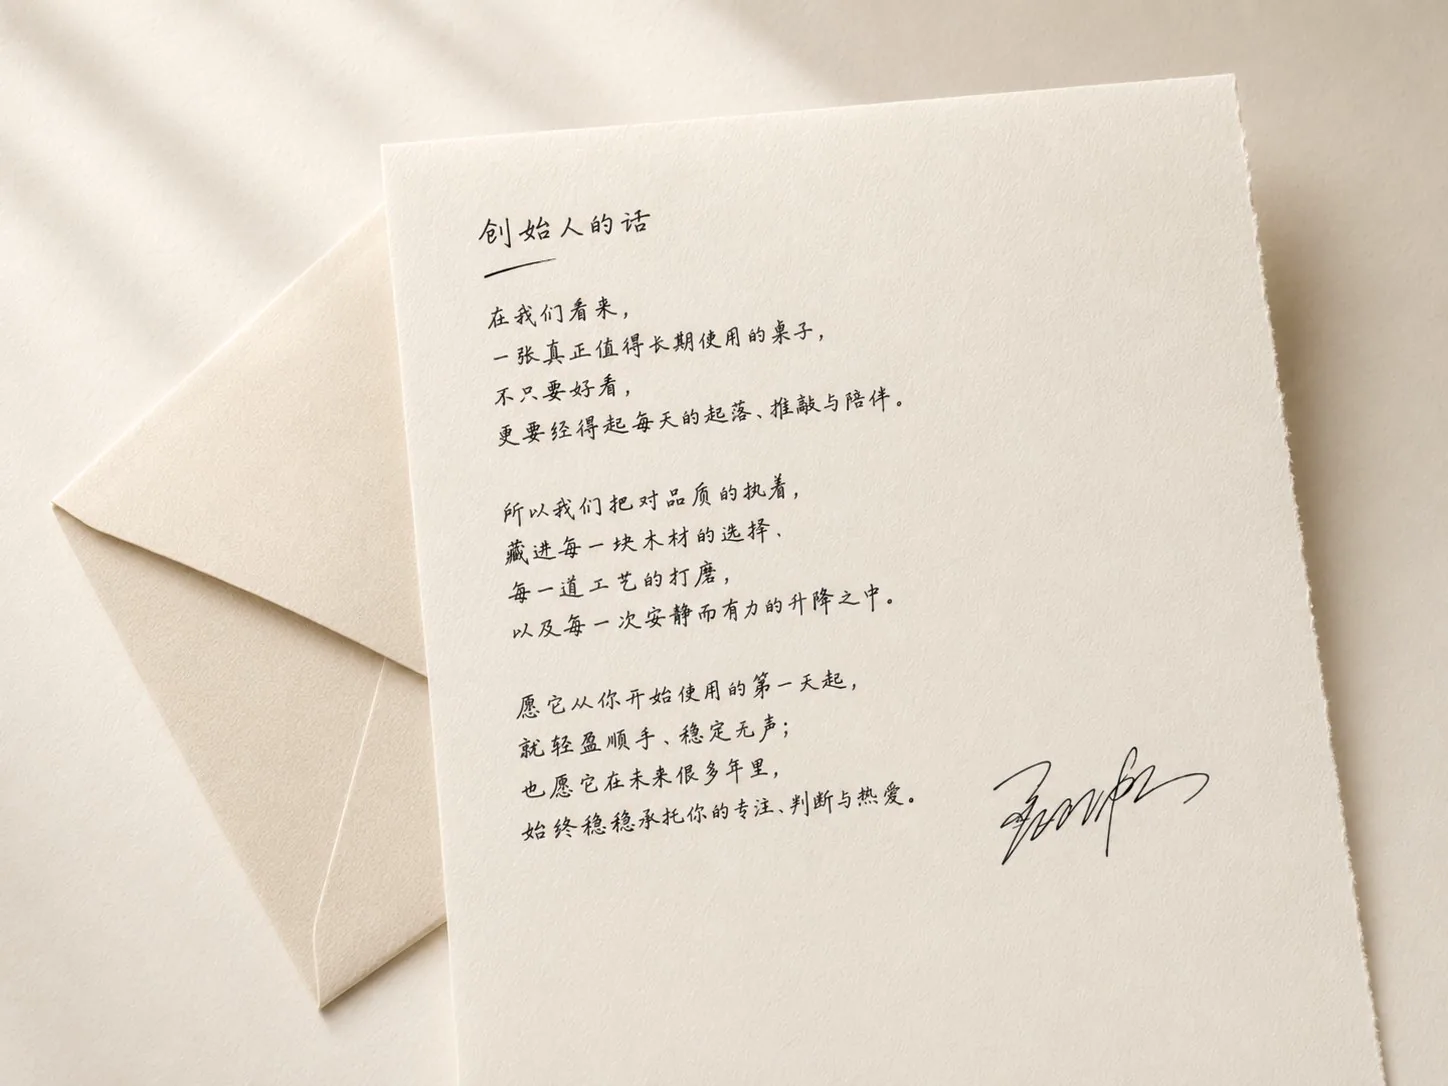 创始人的话
在我们看来，
一张真正值得长期使用的桌子，
不只要好看，
更要经得起每天的起落、推敲与陪伴。
所以我们把对品质的执着，
藏进每一块木材的选择、
每一道工艺的打磨，
以及每一次安静而有力的升降之中。
愿它从你开始使用的第一天起，
就轻盈顺手、稳定无声；
也愿它在未来很多年里，
始终稳稳承托你的专注、判断与热爱。